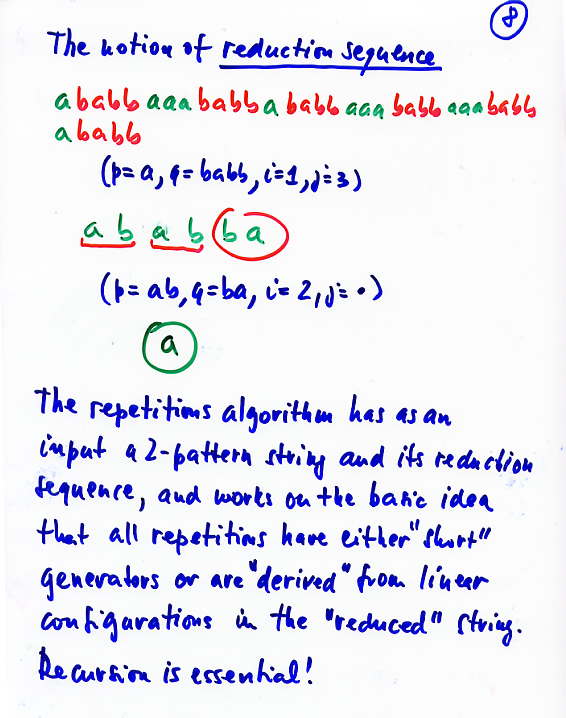 8
The notion of reduction sequence
ababb aaa babb a babb aaa babb aaa babb
ababb
(p=a, q=babb, i=1, j=3)
ab ab ba
(p=ab, q=ba, i=2, j=•)
a
The repetitions algorithm has as an
input a 2-pattern string and its reduction
sequence, and works on the basic idea
that all repetitions have either "short"
generators or are "derived" from linear
configurations in the "reduced" string.
Recursion is essential!